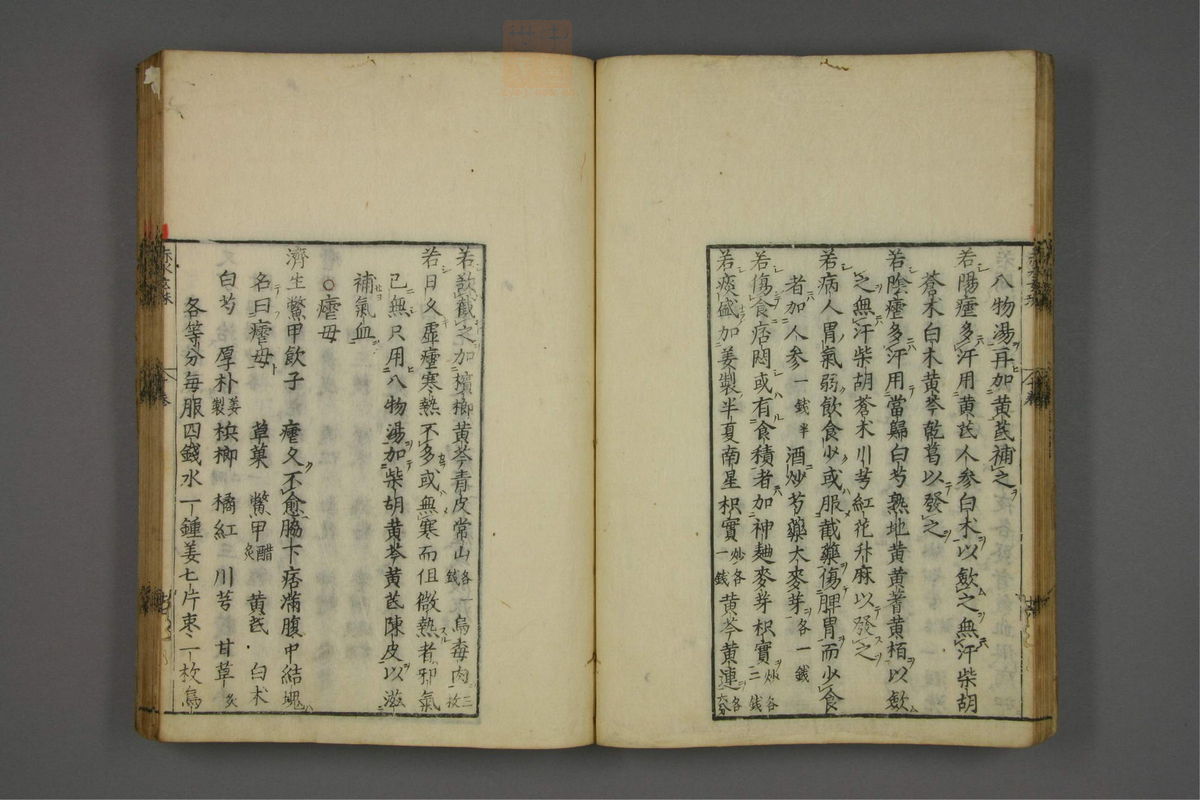 八物湯再加黄芪補之
若陽瘧多汗用黄芪人参白术以歛之無汗柴胡
蒼术白术黄芩乾葛以發之
若陰瘧多汗用當歸白芍熟地黄黄蓍黄栢以歛
之無汗柴胡蒼术川芎紅花升麻以發之
若病人胃氣弱飲食少或服截藥傷脾胃而少食
者加人参一錢半酒炒芍藥大麥芽各一錢
若傷食痞悶或有食積者加神麯麥芽枳實炒各二錢
若痰盛加姜製半夏南星枳實炒各一錢黄芩黄連各六分
若欲截之加檳榔黄芩青皮常山各一錢烏毒肉三枚
若日久虚瘧寒熱不多或無寒而但微熱者邪氣
已無只用八物湯加柴胡黄芩黄芪陳皮以滋
補氣血
○瘧母
濟生鱉甲飲子 瘧久不愈脇下痞滿腹中結塊
名曰瘧母 草菓 鱉甲醋炙 黄芪 白术
白芍 厚朴姜製 梹榔 橘紅 川芎 甘草炙
各等分毎服四錢水一鍾姜七片枣一枚烏